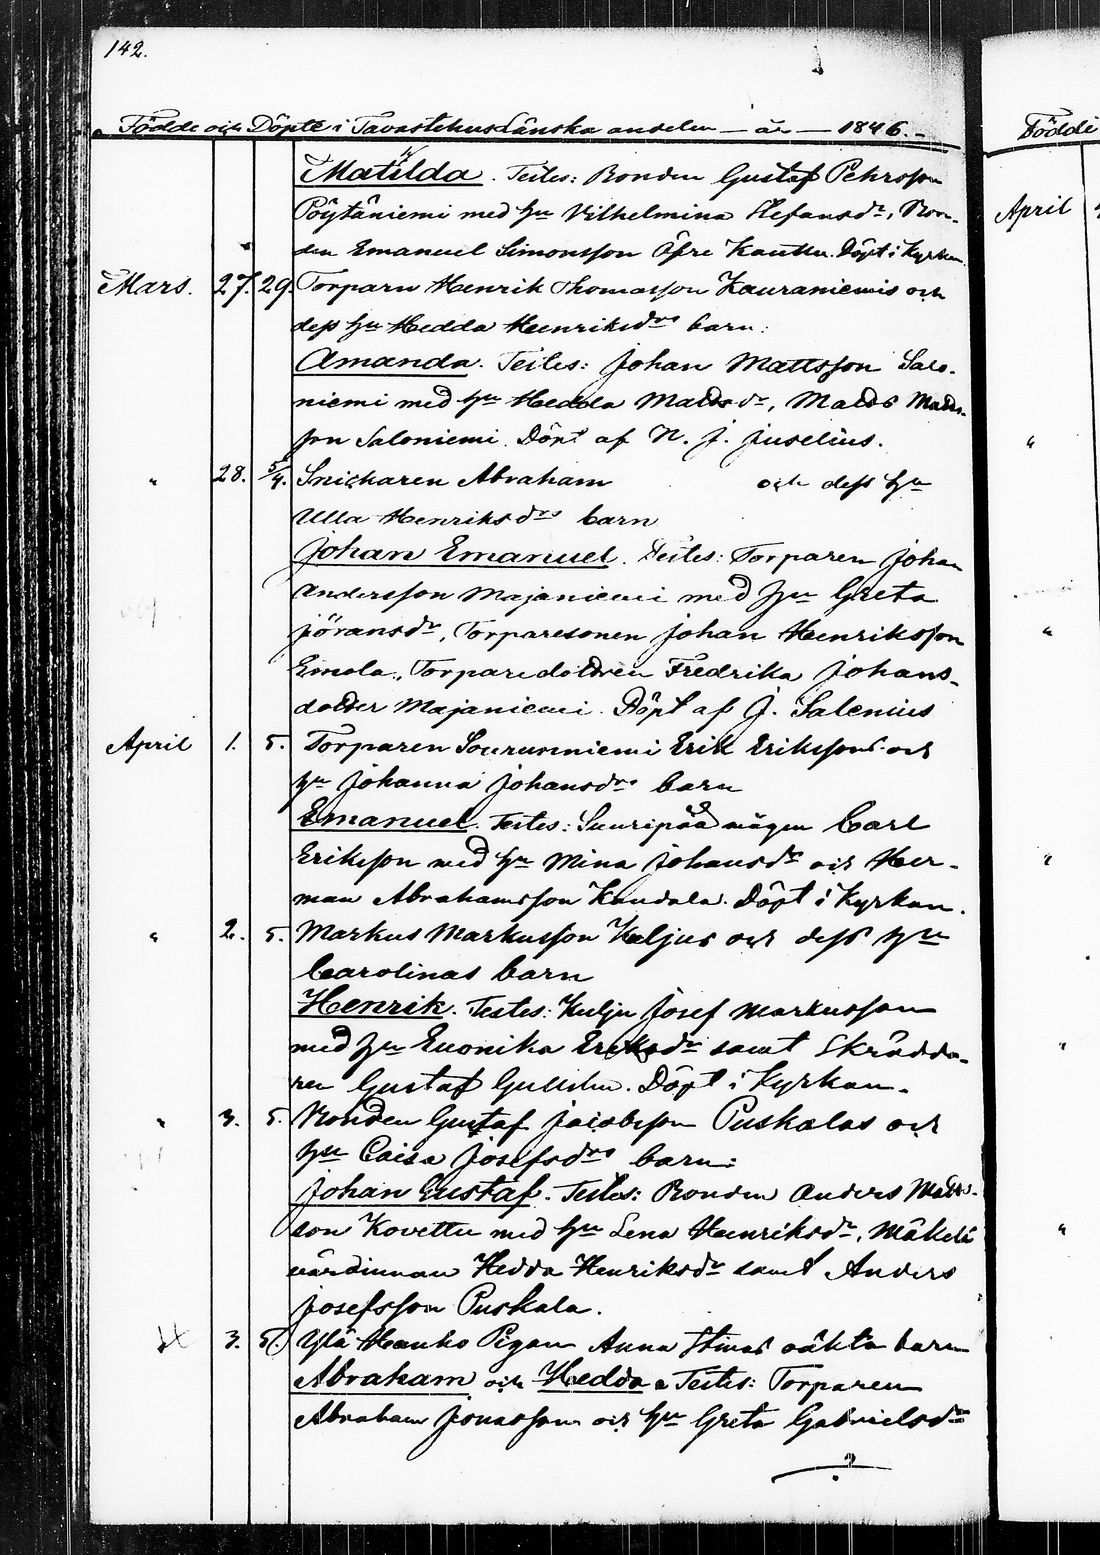 142.
Födde och Döpte i Tavastehus Länska andelen — år — 1846. —
Födde
Matilda. Testes: Bonden Gustaf Pehrsson
Pöytäniemi med hu Vilhelmina Stefansdr, Bon-
den Emanuel Simonsson Öfre Kauttu. Döpt i Kyrkan.
April
Mars. 27. 29. Torparn Henrik Thomasson Kauraniemis och
dess hu Hedda Henriksdrs barn:
Amanda. Testes: Johan Mattsson Salo-
niemi med hu Hedda Mattsdr, Matts Matts-
son Saloniemi. Döpt af N. J. Juselius.
" 28. 5/4. Snickaren Abraham och dess hu
Ulla Henriksdrs barn
Johan Emanuel. Testes: Torparen Johan
Andersson Majaniemi med hu Greta
Jöransdr, Torparesonen Johan Henriksson
Emola, Torparedottren Fredrika Johans-
dotter Majaniemi. Döpt af J. Salenius
April 1. 5. Torparen Souruniemi Erik Erikssons och
hu Johanna Johansdrs barn
Emanuel. Testes: Suuripää mågen Carl
Eriksson med hu Mina Johansdr och Her-
man Abrahamsson Kandala. Döpt i Kyrkan.
" 2. 5. Markus Markusson Keljus och dess hu
Carolinas barn
Henrik. Testes: Kulju Josef Markusson
med hu Euonika Eriksdr samt Skrädda-
ren Gustaf . Döpt i Kyrkan.
" 3. 5. Bonden Gustaf Jacobsson Puskalas och
hu Caisa Josefsdrs barn:
Johan Gustaf. Testes: Bonden Anders Matts-
son Kovettu med hu Lena Henriksdr, Mäkelä
värdinnan Hedda Henriksdr samt Anders
Josefsson Puskala.
3. 5. Ylä Hanko Pigan Anna Stinas oäkta barn
Abraham och Hedda. Testes: Torparen
Abraham Jonasson och hu Greta Gabrielsdr